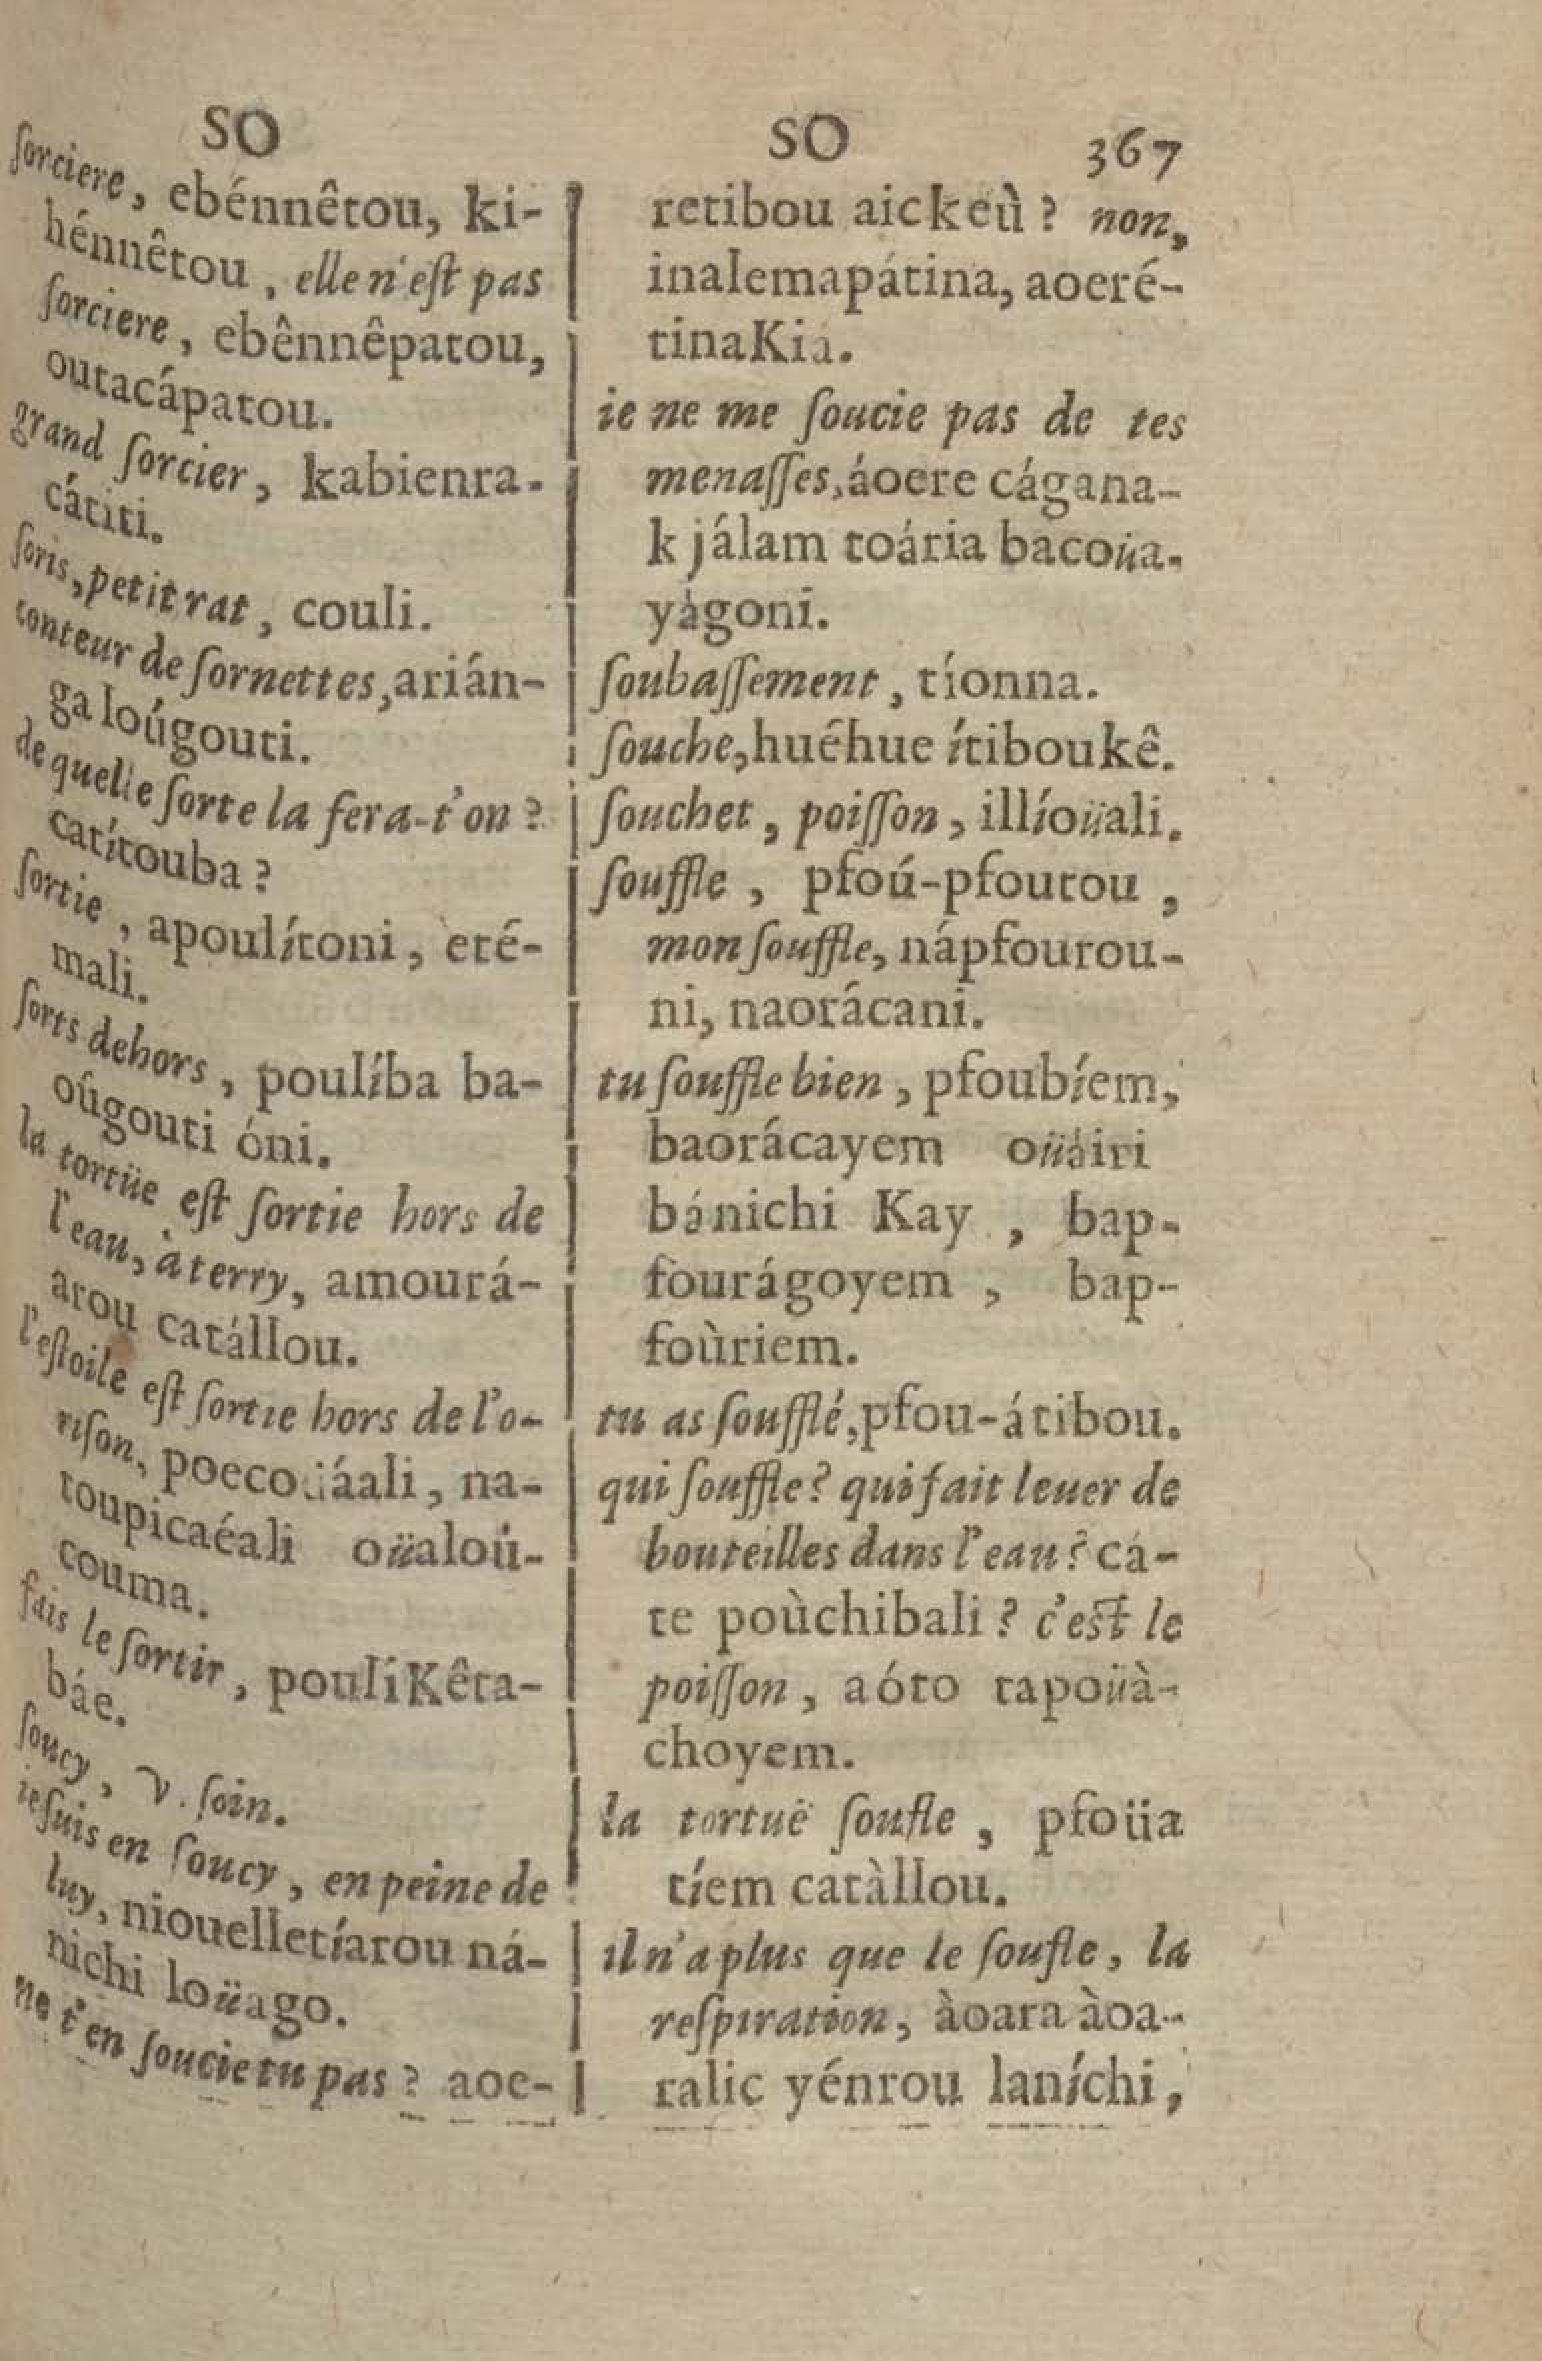 SO
ſorciere, ebénnêtou, ki-
hénnêtou, elle n'eſt pas
ſorciere, ebênnêpatou,
outacápatou.
grand ſorcier, kabienra-
cátiti.
ſoris, petit rat, couli.
conteur de ſornettes, arián-
ga loúgouti.
de quelle ſorte la fera-t'on?
catítouba?
ſortie, apoulítoni, eté-
mali.
ſorts dehors, poulíba ba-
oúgouti óni.
la tortüe eſt ſortie hors de
l'eau, à terry, amourá-
arou catállou.
l'eſtoile eſt ſortie hors de l'o-
riſon, poecoüáali, na-
toupicaéali oüaloú-
couma.
fais le ſortir, poulíKêta-
báe.
ſoucy, v. ſoin.
ie ſuis en ſoucy, en peine de
luy, niouelletíarou ná-
nichi loüago.
ne t'en ſoucie tu pas? aoe-
SO 367
retibou aickeù? non,
inalemapátina, aoeré-
tinaKia.
ie ne me ſoucie pas de tes
menaſſes, áoere cágana-
k jálam toária bacoüa-
yágoni.
ſoubaſſement, tíonna.
ſouche, huéhue ítiboukê.
ſouchet, poiſſon, illíoüali.
ſouffle, pfoú-pfoutou,
mon ſouffle, nápfourou-
ni, naorácani.
tu ſouffle bien, pfoubíem,
baorácayem oüáiri
bánichi Kay, bap-
fourágoyem, bap-
foùriem.
tu as ſoufflé, pfou-átibou.
qui ſouffle? qui fait leuer de
bouteilles dans l'eau? cá-
te poùchibali? c'eſt le
poiſſon, aóto tapoüà-
choyem.
la tortuë ſoufle, pfoüa
tíem catàllou.
il n'a plus que le ſoufle, la
reſpiration, àoara àoa-
ralic yénrou laníchi,